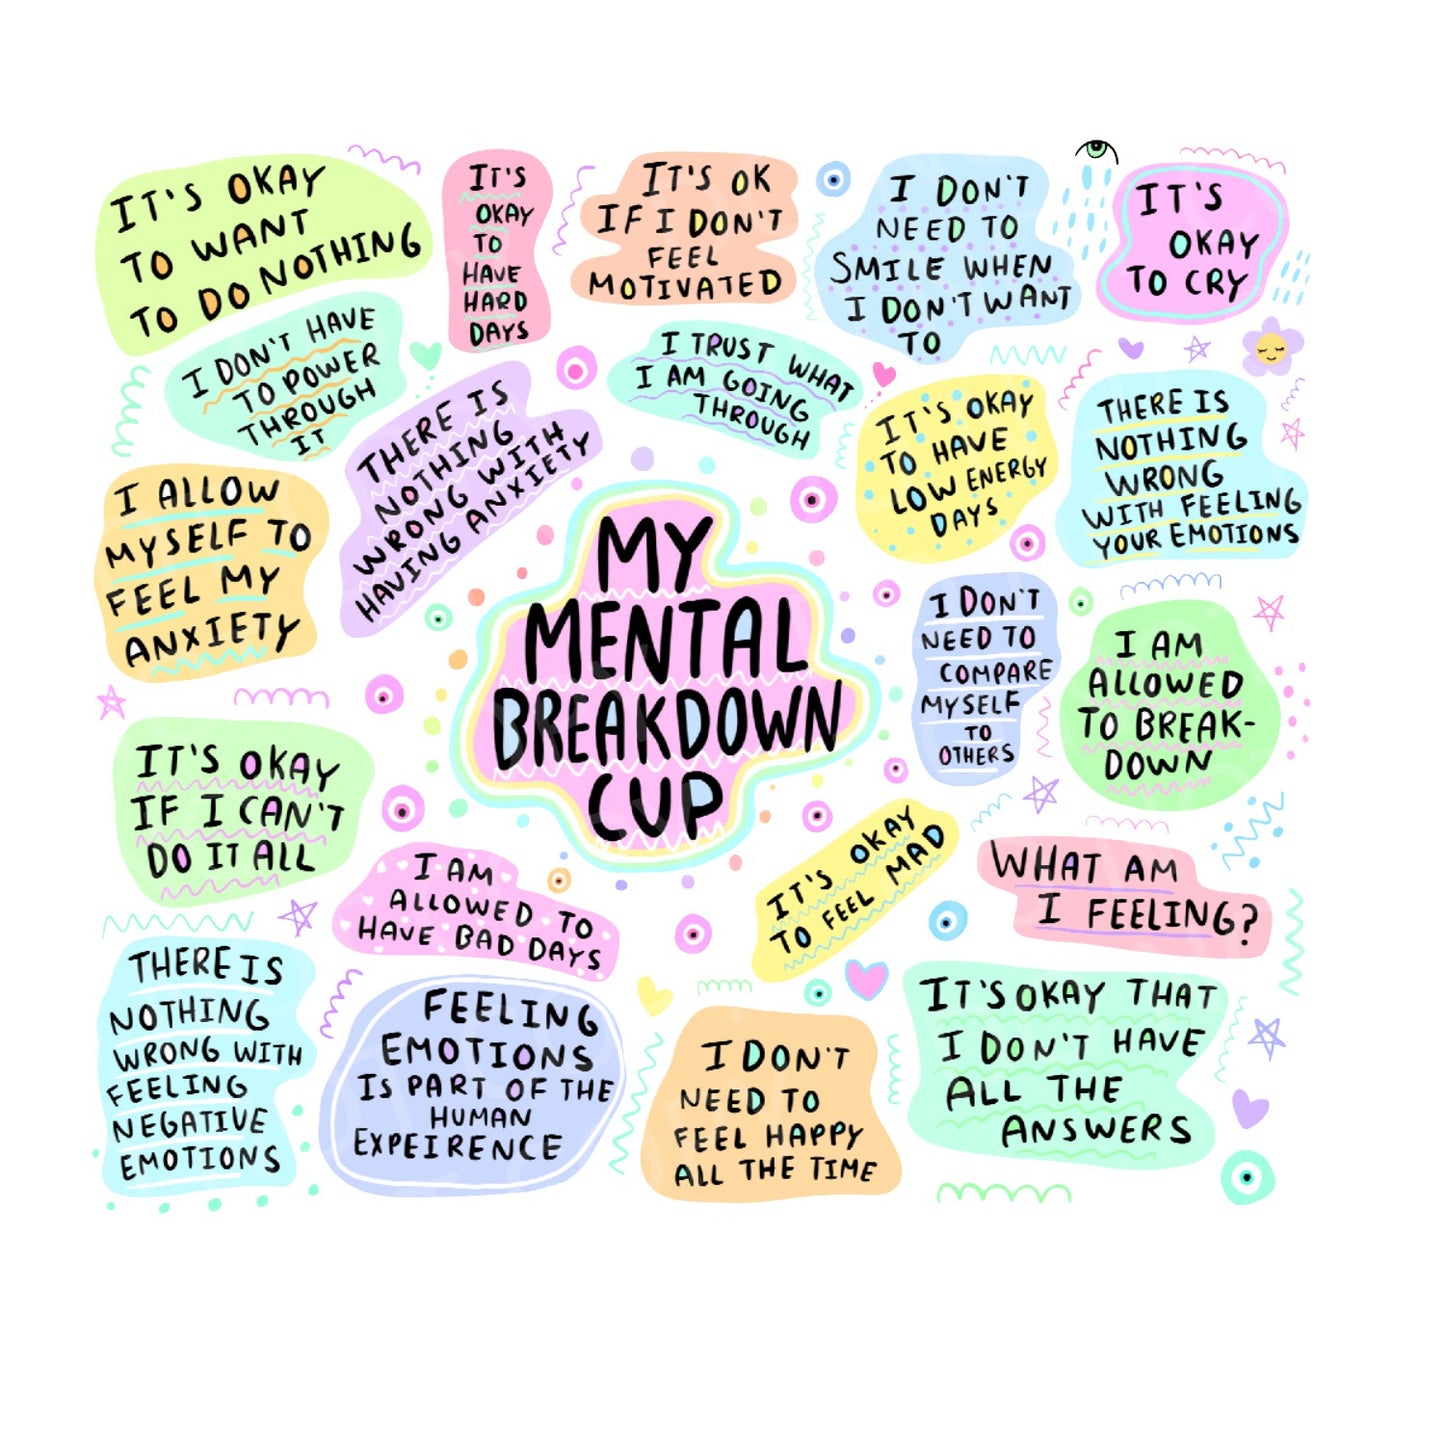 IT'S OKAY
TO WANT
TO DO NOTHING
IT'S
OKAY
TO
HAVE
HARD
DAYS
IT'S OK
IF I DON'T
FEEL
MOTIVATED
I DON'T
NEED TO
SMILE WHEN
I DON'T WANT
TO
IT'S
OKAY
TO CRY
I DON'T HAVE
TO POWER
THROUGH
IT
THERE IS
NOTHING
WRONG WITH
HAVING ANXIETY
I TRUST WHAT
I AM GOING
THROUGH
IT'S OKAY
TO HAVE
LOW ENERGY
DAYS
THERE IS
NOTHING
WRONG
WITH FEELING
YOUR EMOTIONS
I ALLOW
MYSELF TO
FEEL MY
ANXIETY
MY
MENTAL
BREAKDOWN
CUP
I DON'T
NEED TO
COMPARE
MYSELF
TO
OTHERS
I AM
ALLOWED
TO BREAK-
DOWN
IT'S OKAY
IF I CAN'T
DO IT ALL
I AM
ALLOWED TO
HAVE BAD DAYS
IT'S OKAY
TO FEEL MAD
WHAT AM
I FEELING?
THERE IS
NOTHING
WRONG WITH
FEELING
NEGATIVE
EMOTIONS
FEELING
EMOTIONS
IS PART OF THE
HUMAN
EXPEIRENCE
I DON'T
NEED TO
FEEL HAPPY
ALL THE TIME
IT'S OKAY THAT
I DON'T HAVE
ALL THE
ANSWERS